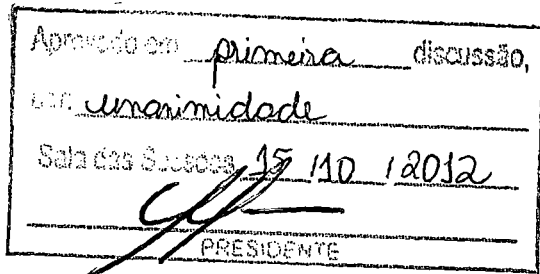 Aprovado em primeira discussão,
por unanimidade
Sala das Sessões 15 / 10 / 2012
PRESIDENTE